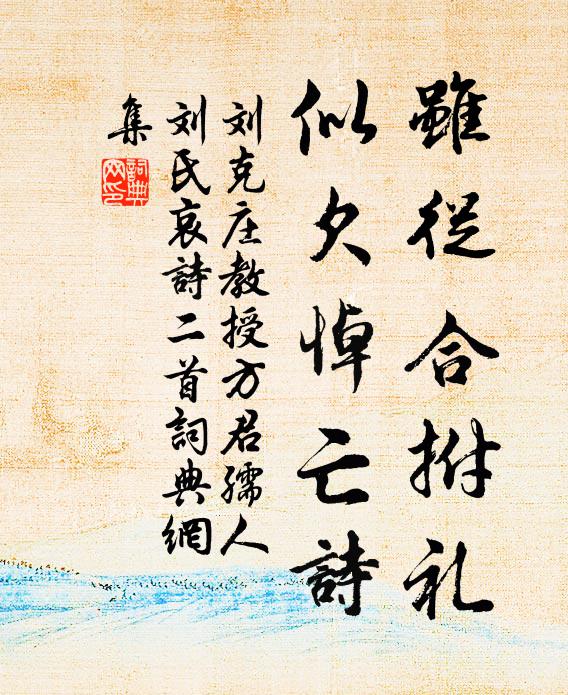 雖從合拊礼
似欠悼亡詩
刘克庄教授方君孺人
刘氏哀詩二首詞典網
集
詞典網印